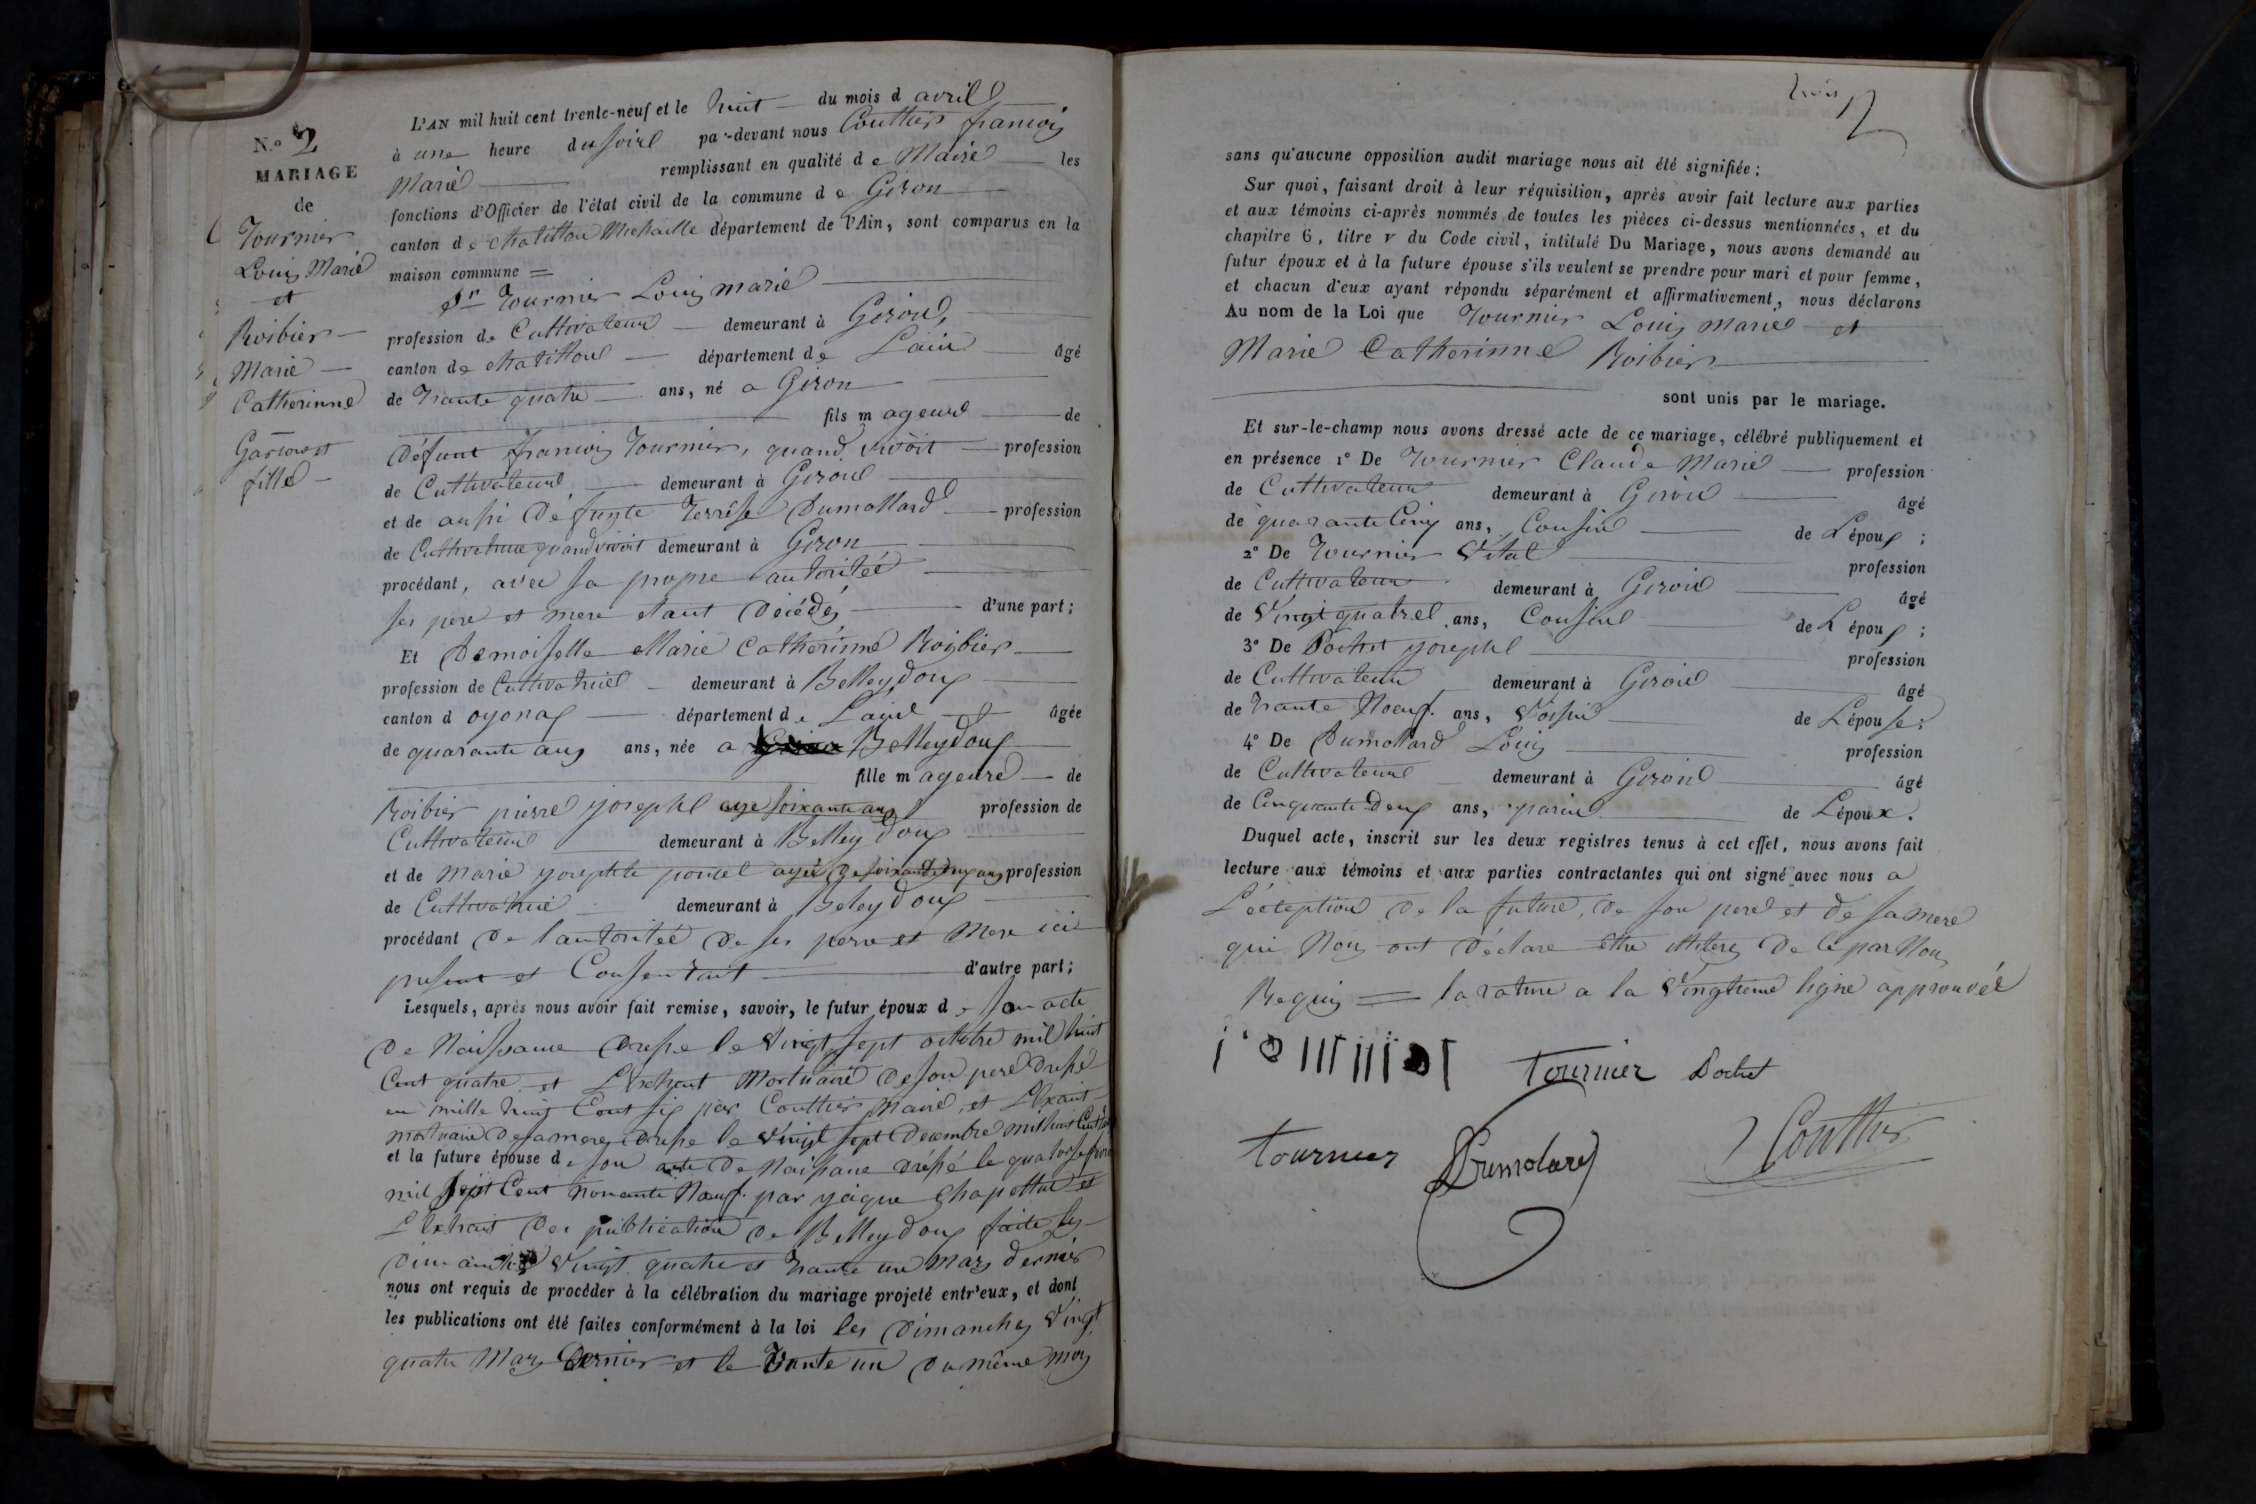 N.o 2
MARIAGE
de
Tournier
Louis Marie
et
Roibier
Marie
Catherinne
Garcon et
fille
L'AN mil huit cent trente-neuf et le huit du mois d avril
à une heure du soire par-devant nous Couttier francois
Marie remplissant en qualité de Maire les
fonctions d'Officier de l'état civil de la commune de Giron
canton de chatillon Michaille département de l'Ain, sont comparus en la
maison commune =
Sr Tournier Louis marie
profession de Cultivateur demeurant à Giron,
canton de chatillon département de Lain âgé
de trante quatre ans, né a Giron
fils mageure de
défunt francois Tournier, quand vivoit profession
de Cultivateur demeurant à Giron
et de aussi défunte Terrèse Dumollard profession
de Cultivatrice quand vivoit demeurant à Giron
procédant, avec sa propre autoritéé
ses pere et mere etant décédés d'une part;
Et Demoiselle Marie Catherinne Roybier
profession de Cultivatrice demeurant à Belleydoux
canton d oyonax département de Lain âgée
de quarante ans ans, née a Belleydoux
fille mageure de
Roibier pierre joseph age soixante ans profession de
Cultivateur demeurant à Belleydoux
et de Marie josephte poncet agée de soixante deux ans profession
de Cultivatrice demeurant à Beleydoux
procédant de l'autoritéé de ses pere et Mere ici
present et Consentant d'autre part;
Lesquels, après nous avoir fait remise, savoir, le futur époux de son acte
de Naissance dresse le vingt sept octobre mil huit
Cent quatre et L'Extrait Mortuaire de son pere dresse
en mille huit Cent six par Couttier maire, et L'Extrait
mortuaire de sa mere dresse le vingt sept Decembre mil huit Cent
et la future épouse de son acte de Naissance dréssé le quatorse
mil sept Cent nonante Noeuf par jaque Chapellu et
L'Extrait des publication de Belleydoux faite les
dimanches vingt quatre et trante un Mars dernier
nous ont requis de procéder à la célébration du mariage projeté entr'eux, et dont
les publications ont été faites conformément à la loi les dimanches vingt
quatre Mars dernier et le trante un du même mois
trois
sans qu'aucune opposition audit mariage nous ait été signifiée;
Sur quoi, faisant droit à leur réquisition, après avoir fait lecture aux parties
et aux témoins ci-après nommés de toutes les pièces ci-dessus mentionnées, et du
chapitre 6, titre v du Code civil, intitulé Du Mariage, nous avons demandé au
futur époux et à la future épouse s'ils veulent se prendre pour mari et pour femme,
et chacun d'eux ayant répondu séparément et affirmativement, nous déclarons
Au nom de la Loi que Tournier Louis Marie et
Marie Catherinne Roibier
sont unis par le mariage.
Et sur-le-champ nous avons dressé acte de ce mariage, célébré publiquement et
en présence 1° De Tournier Claude Marie profession
de Cultivateur demeurant à Giron âgé
de quarante Cinq ans, Cousin de L'époux;
2° De Tournier Vital profession
de Cultivateur demeurant à Giron âgé
de Vingt quatre ans, Cousin de L'époux;
3° De Bochet joseph profession
de Cultivateur demeurant à Giron âgé
de trante Noeuf ans, Voisin de L'épouse;
4° De Dumollard Louis profession
de Cultivateur demeurant à Giron âgé
de Cinquante deux ans, parin de L'époux.
Duquel acte, inscrit sur les deux registres tenus à cet effet, nous avons fait
lecture aux témoins et aux parties contractantes qui ont signé avec nous a
L'éxteption de la future, de son pere et de sa mere
qui Nous ont déclare être illiteres de le par Nous
Requis = la rature a la vingtieme ligne approuvée
Tournier Bochet
Tournier Dumolard Couttier